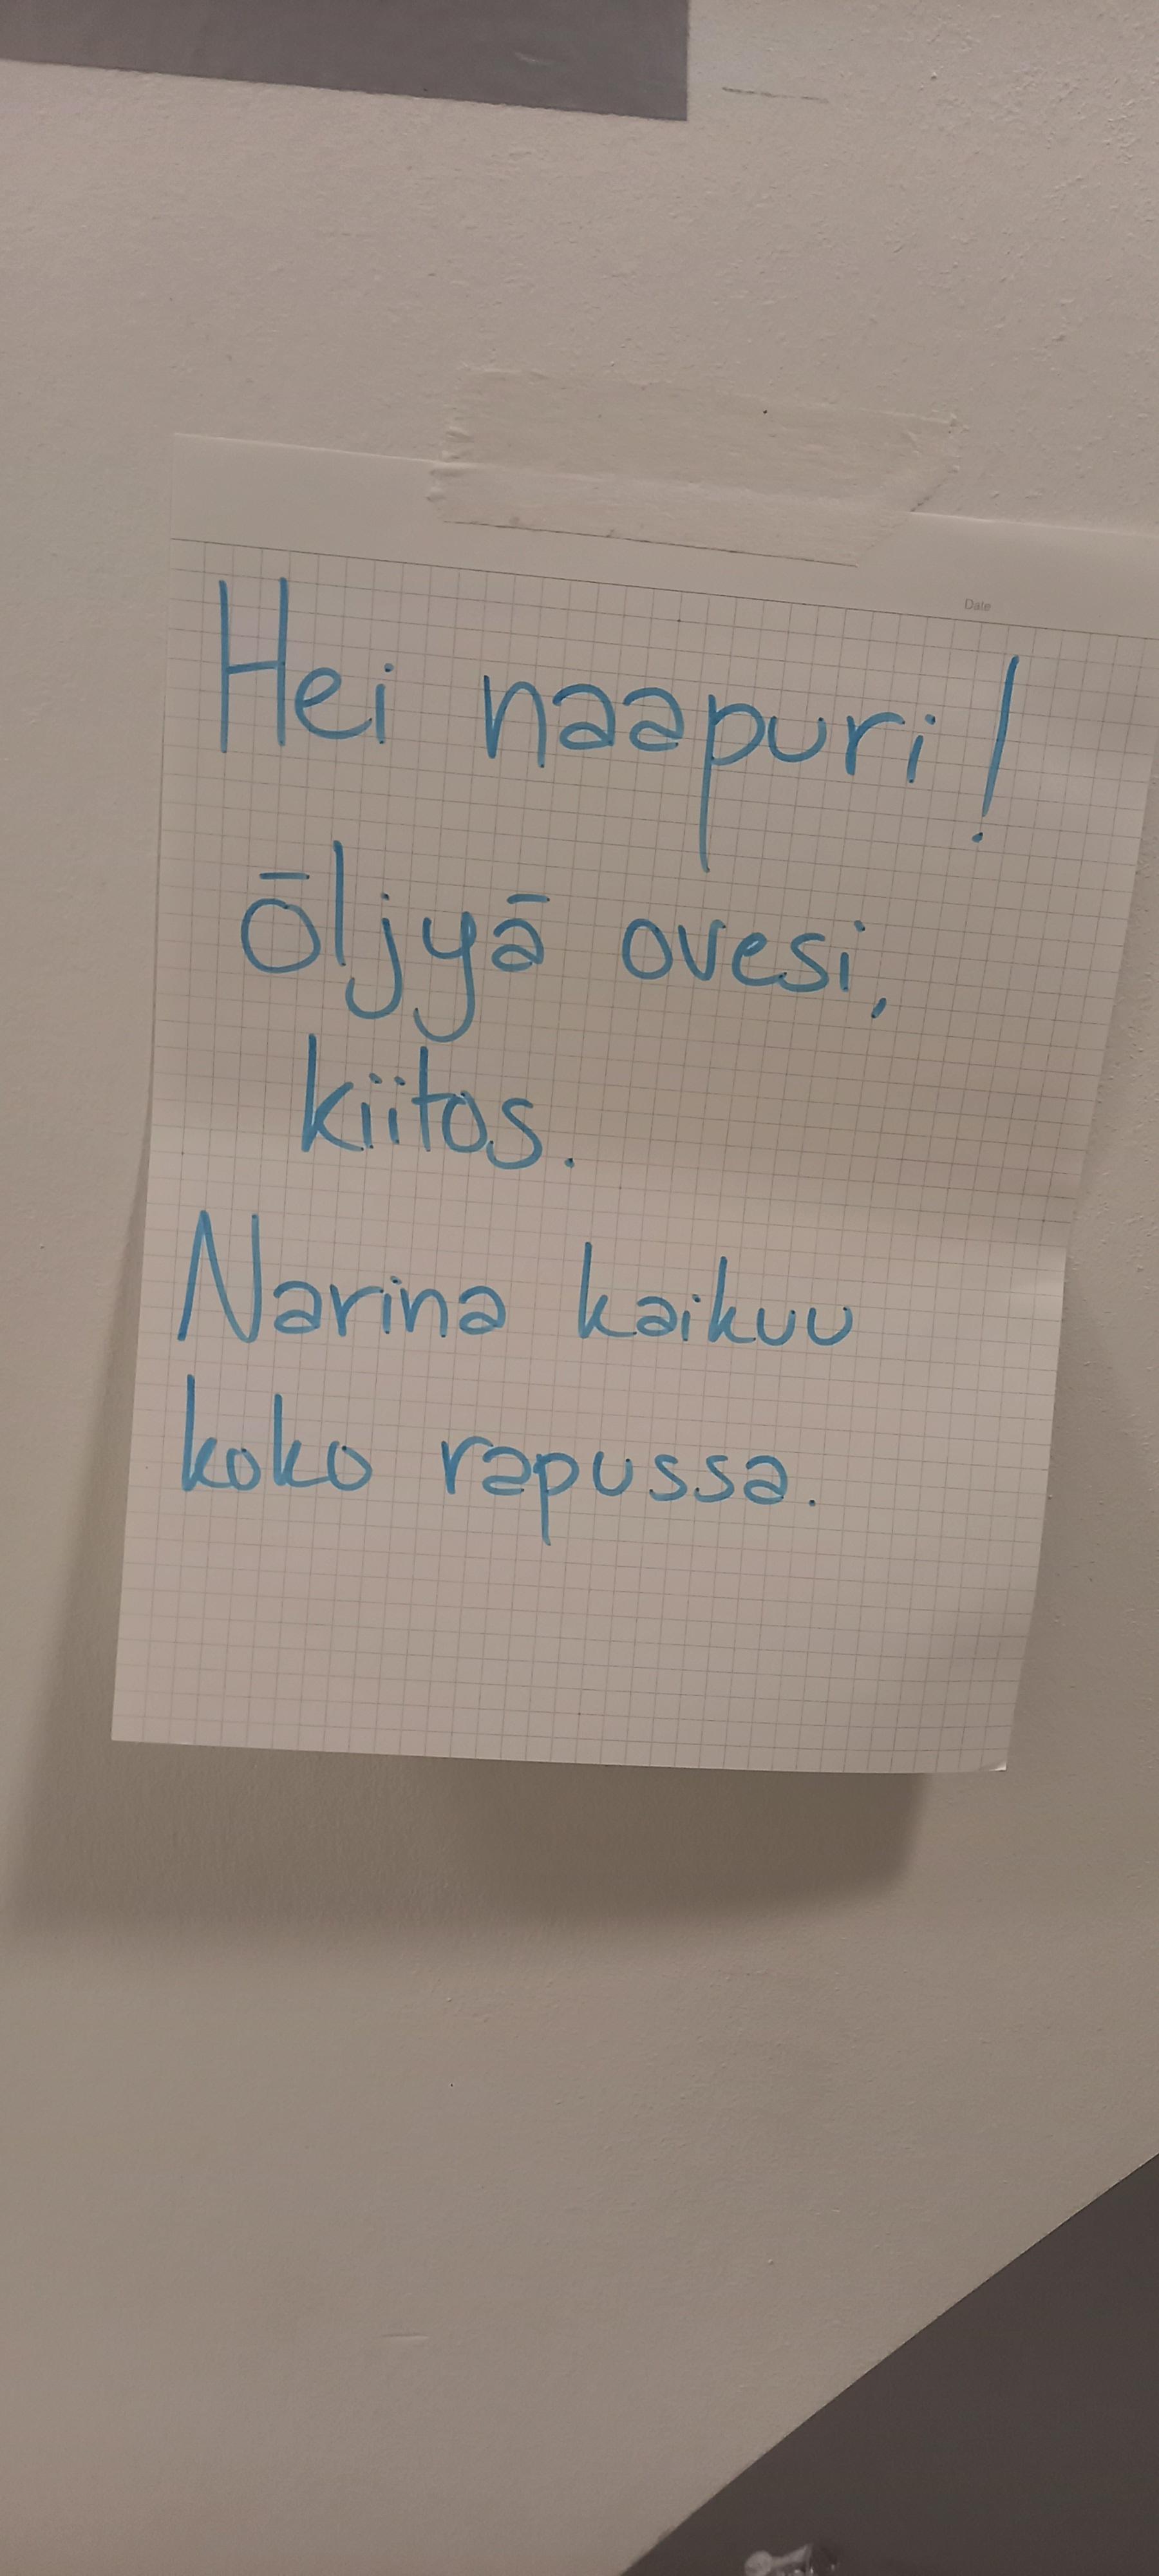 Date
Hei naapuri!
öljyä ovesi,
kiitos.
Narina kaikuu
koko rapussa.